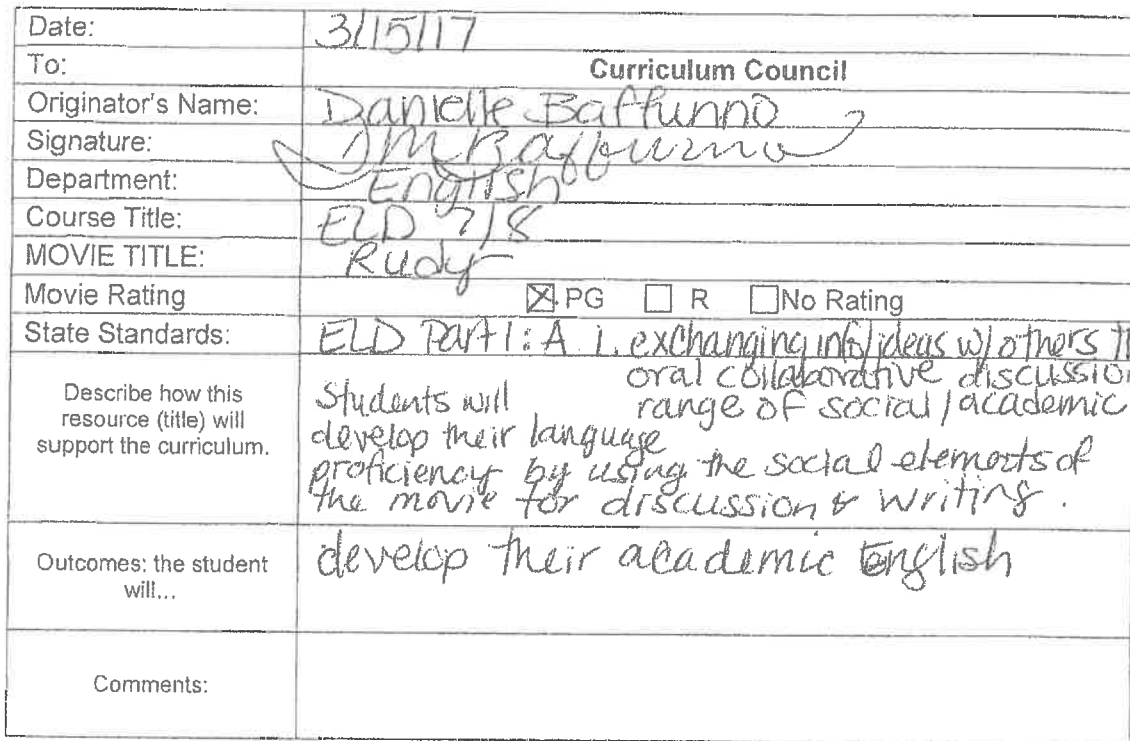 Date: 3/15/17
To: Curriculum Council
Originator's Name: Danielle Baffunno
Signature: DMBaffunno
Department: English
Course Title: ELD 7/8
MOVIE TITLE: Rudy
Movie Rating ☒ PG ☐ R ☐ No Rating
State Standards: ELD Part 1: A 1. exchanging info/ideas w/others
oral collaborative discussion
range of social/academic
Describe how this
resource (title) will
support the curriculum.
Students will
develop their language
proficiency by using the social elements of
the movie for discussion & writing.
Outcomes: the student
will...
develop their academic English
Comments: